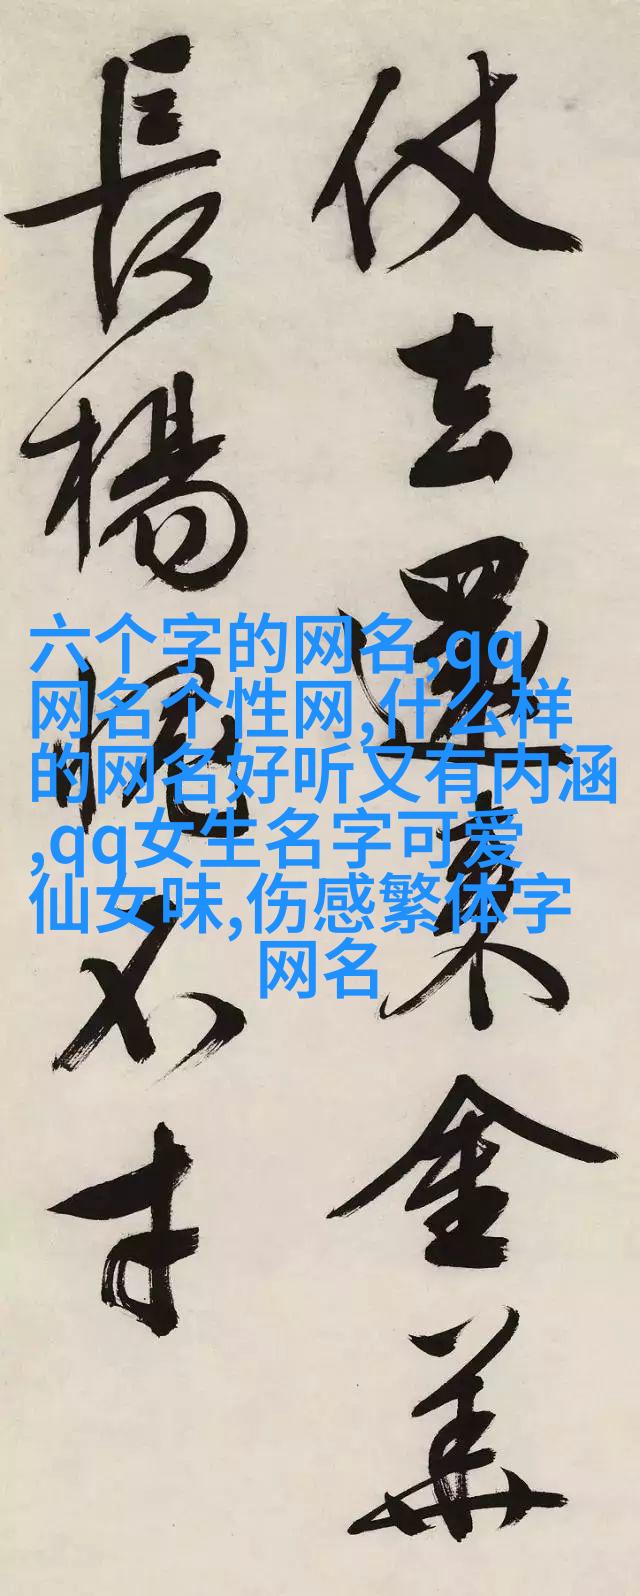 仗去還金華
長楊愧不才
六个字的网名,qq
网名个性网,什么样
的网名好听又有内涵
,qq女生名字可爱
仙女味,伤感繁体字
网名